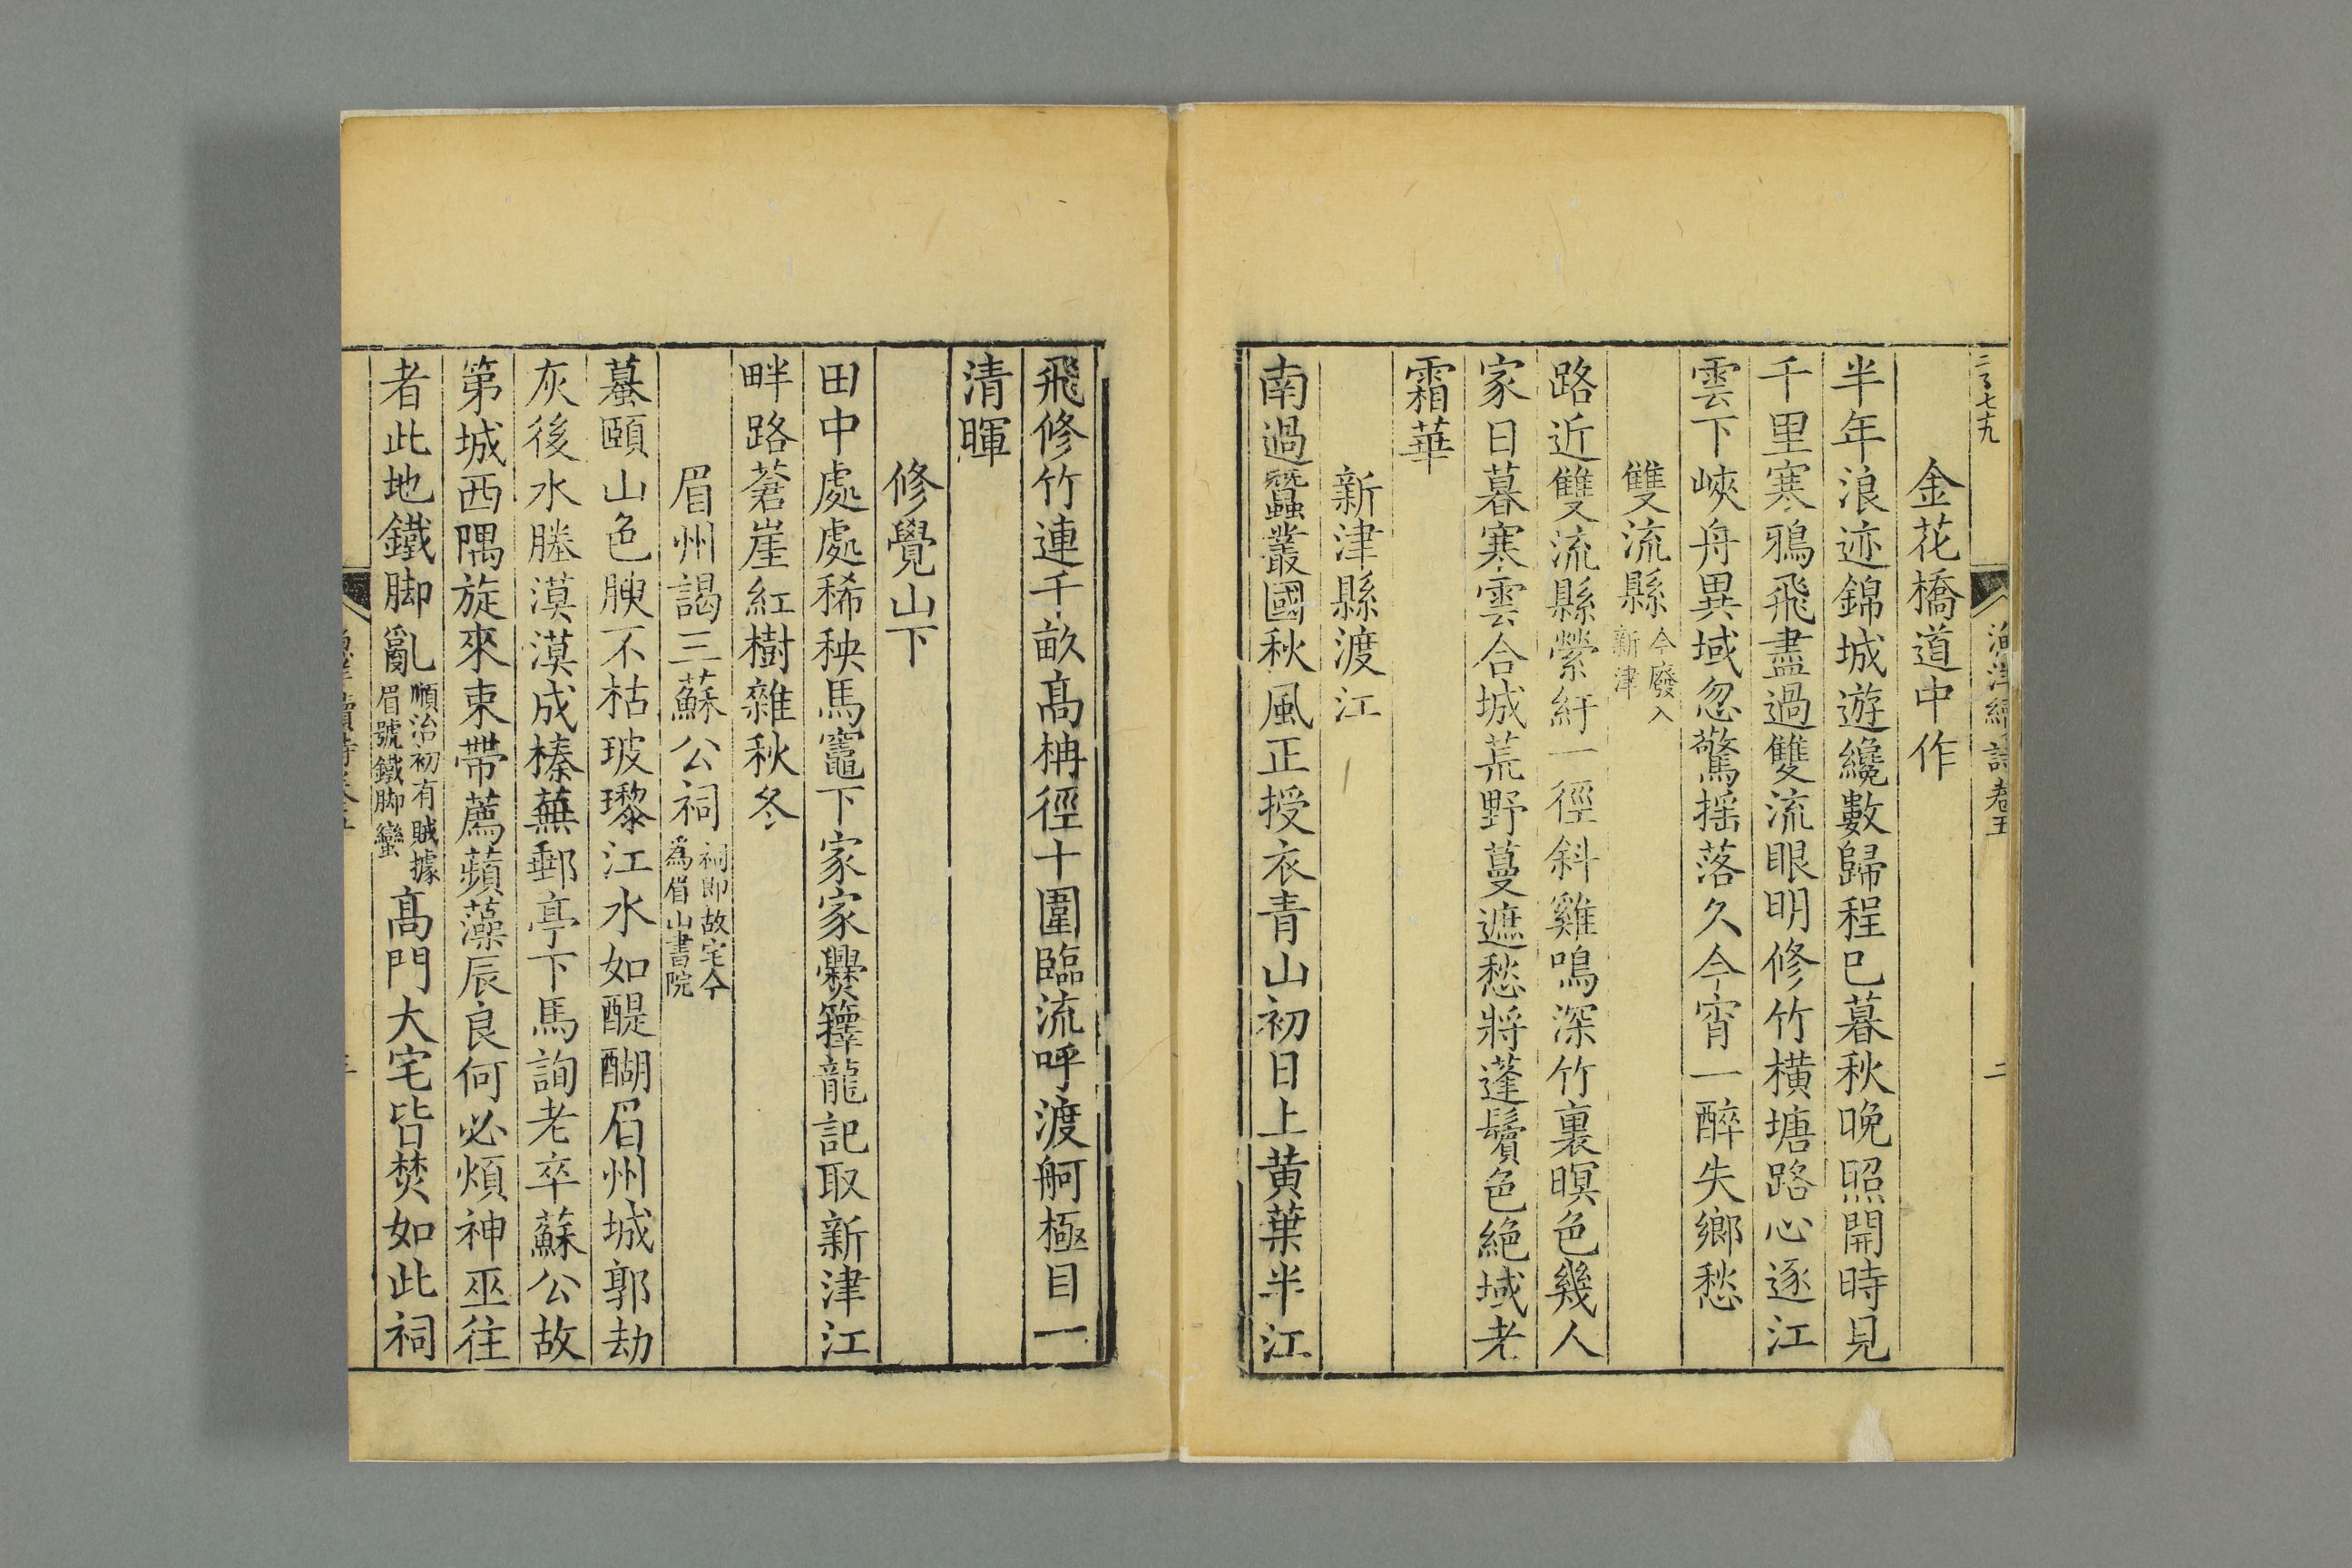 金花橋道中作
半年浪迹錦城遊纔數歸程已暮秋晚照開時見
千里寒鴉飛盡過雙流眼明修竹橫塘路心逐江
雲下峽舟異域忽驚揺落久今宵一醉失鄉愁
雙流縣今廢入新津
路近雙流縣縈紆一徑斜雞鳴深竹裏暝色幾人
家日暮寒雲合城荒野蔓遮愁將蓬鬢色絶域老
霜華
新津縣渡江
南過蠶叢國秋風正授衣青山初日上黄葉半江
飛修竹連千畝髙柟徑十圍臨流呼渡舸極目一
清暉
修覺山下
田中處處稀秧馬竈下家家爨籜龍記取新津江
畔路蒼崖紅樹雜秋冬
眉州謁三蘇公祠祠即故宅今為眉山書院
蟇頤山色腴不枯玻瓈江水如醍醐眉州城郭劫
灰後水塍漠漠成榛蕪郵亭下馬詢老卒蘇公故
第城西隅旋來束帶薦蘋藻辰良何必煩神巫往
者此地鐵脚亂順治初有賊據眉號鐵脚蠻髙門大宅皆焚如此祠